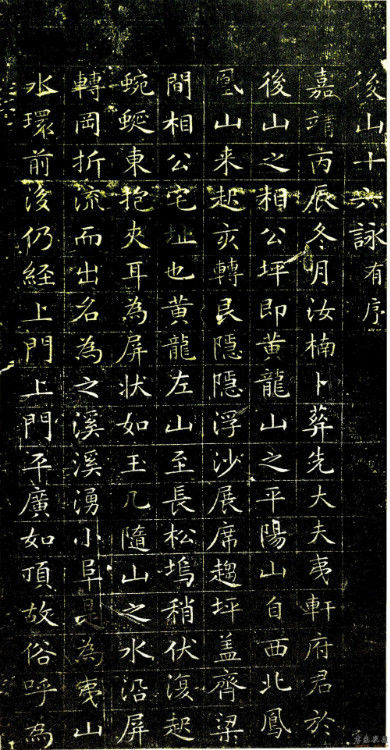 後山十六詠有序
嘉靖丙辰冬月汝楠卜葬先大夫夷軒府君於
後山之相公坪即黄龍山之平陽山自西北鳳
凰山来起亥轉艮隱隱浮沙展席趨坪盖齊梁
間相公宅址也黄龍左山至長松塢稍伏復起
蜿蜒東抱夾耳為屏状如玉几隨山之水沿屏
轉岡折流而出名為之溪溪湧小阜是為夷山
水環前後仍経上門上門平廣如頂故俗呼為